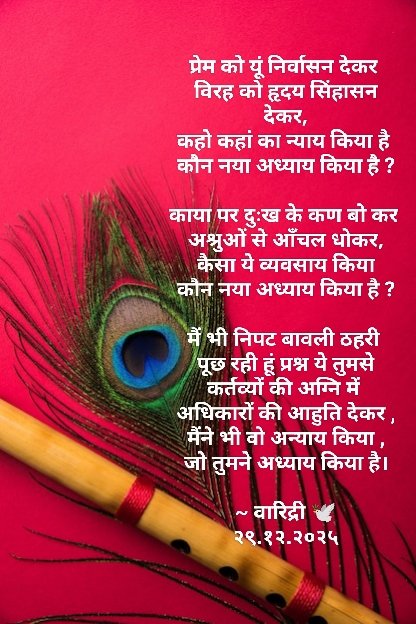 प्रेम को यूं निर्वासन देकर
विरह को हृदय सिंहासन
देकर,
कहो कहां का न्याय किया है
कौन नया अध्याय किया है ?
काया पर दुःख के कण बो कर
अश्रुओं से आँचल धोकर,
कैसा ये व्यवसाय किया
कौन नया अध्याय किया है ?
मैं भी निपट बावली ठहरी
पूछ रही हूं प्रश्न ये तुमसे
कर्तव्यों की अग्नि में
अधिकारों की आहुति देकर ,
मैंने भी वो अन्याय किया ,
जो तुमने अध्याय किया है।
~ वारिद्री 🕊️
२९.१२.२०२५